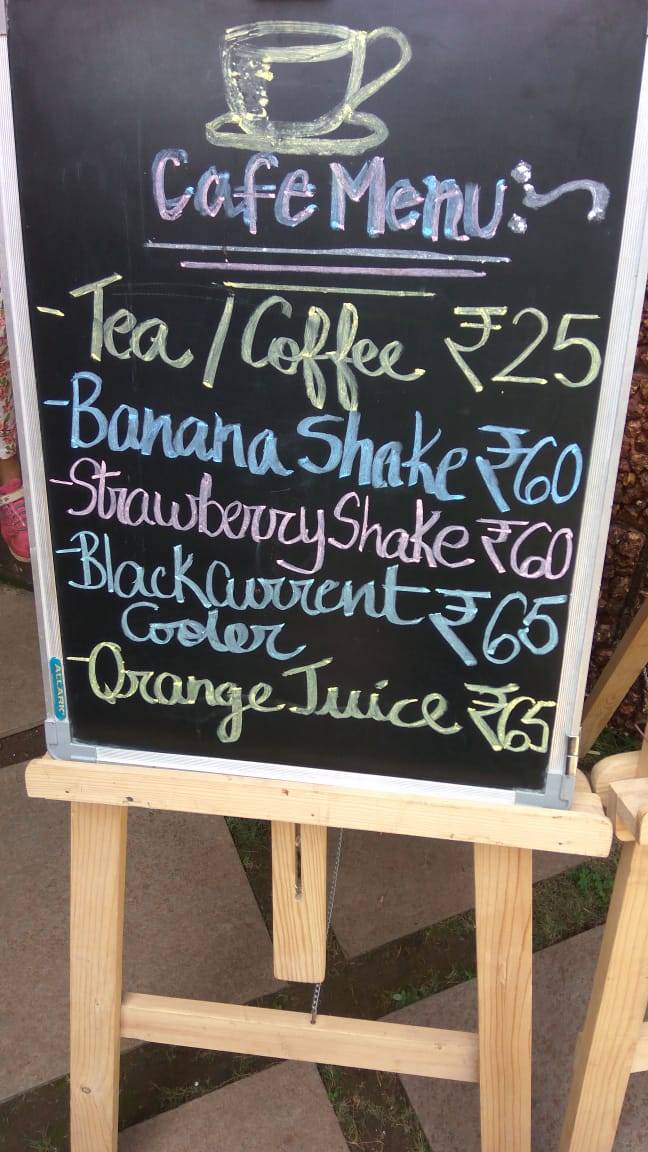 Cafe Menu:~
- Tea / Coffee ₹25
- Banana Shake ₹60
- Strawberry Shake ₹60
- Blackcurrent ₹65
Cooler
- Orange Juice ₹65
ALLARK